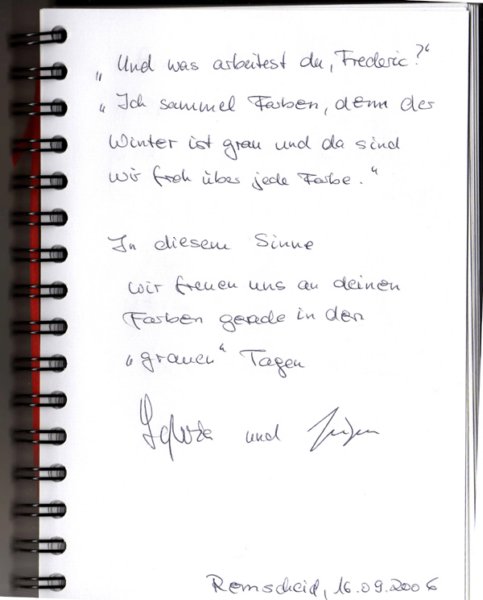 „Und was arbeitest du, Frederic?“
„Ich sammel Farben, denn der
Winter ist grau und da sind
wir froh über jede Farbe.“
In diesem Sinne
wir freuen uns an deinen
Farben gerade in den
„grauen“ Tagen
und
Remscheid, 16.09.2006